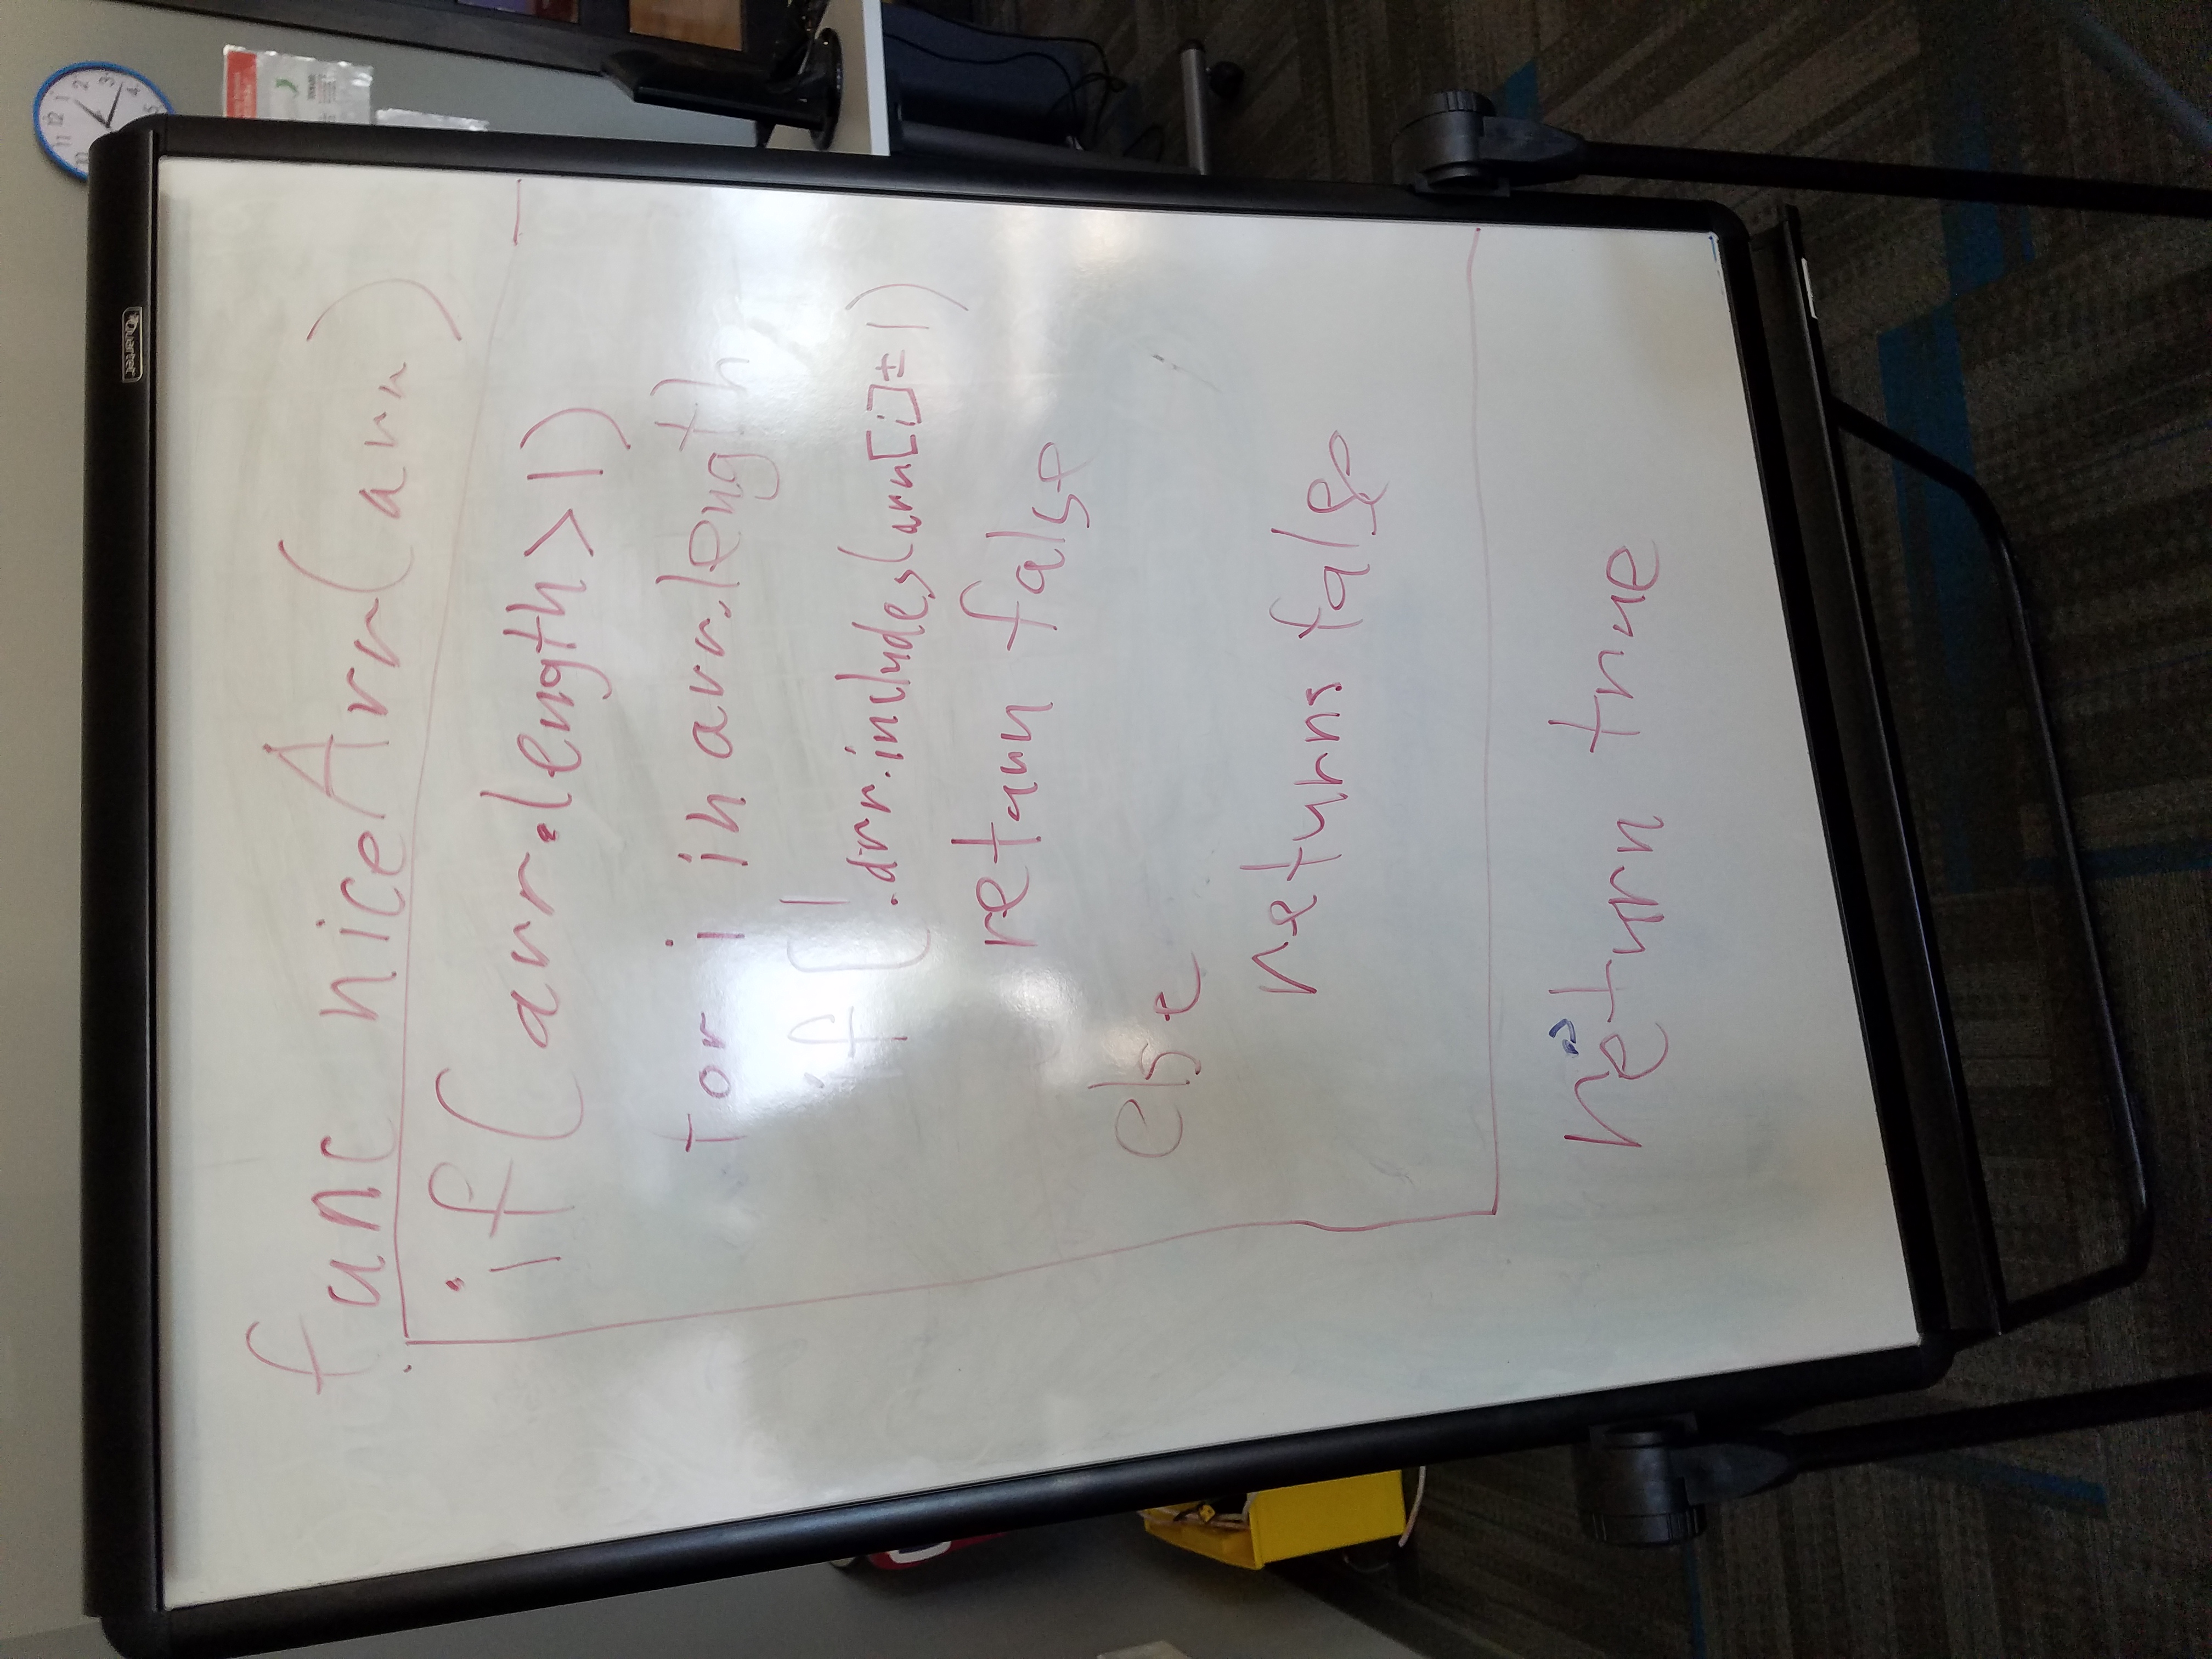 Quartet
func niceArr(arr)
if(arr.length>1)
for i in arr.length
if(!arr.includes(arr[i]±1)
return false
else
returns false
return true
12
1
2
3
4
5
10
11